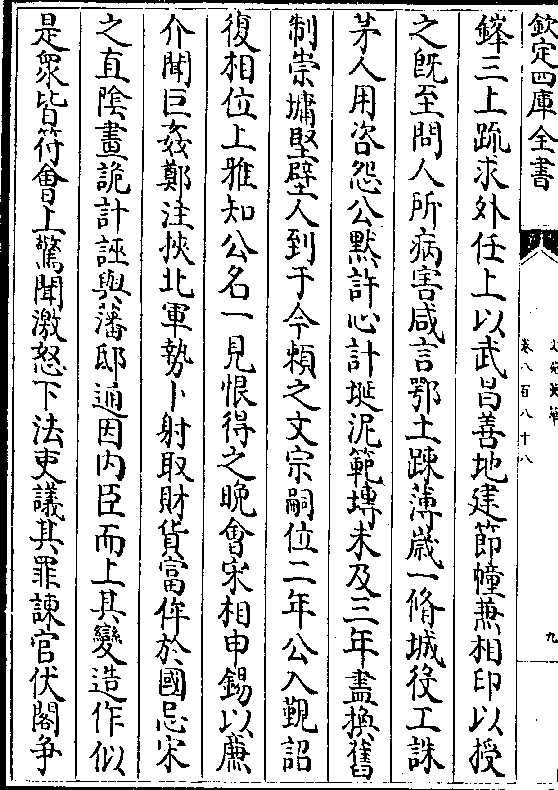 欽定四庫全書
卷八百八十八
九
鋒三上䟽求外任上以武昌善地建節幢兼相印以授
之既至問人所病害咸言鄂土踈薄歳一脩城役工誅
茅人用咨怨公黙許心計埏泥範塼未及三年盡換舊
制崇墉堅壁人到于今頼之文宗嗣位二年公入覲詔
復相位上雅知公名一見恨得之晚㑹宋相申錫以亷
介聞巨姦鄭注挾北軍勢卜射取財貨富侔於國忌宋
之直陰畫詭計誣與藩邸通因内臣而上其變造作似
是衆皆符㑹上驚聞激怒下法吏議其罪諫官伏閤争